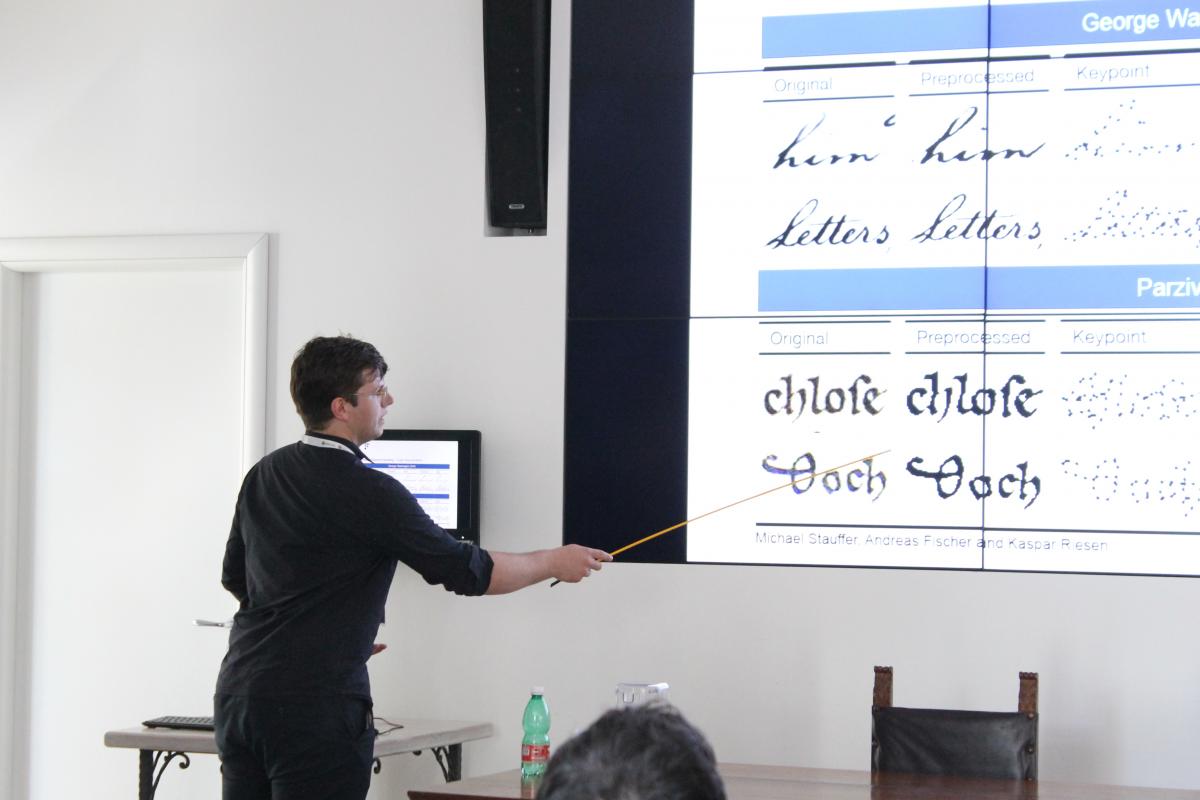 George Wa
Original Preprocessed Keypoint
him him
Letters, Letters,
Parziv
Original Preprocessed Keypoint
chloſe chloſe
Doch Doch
Michael Stauffer, Andreas Fischer and Kaspar Riesen